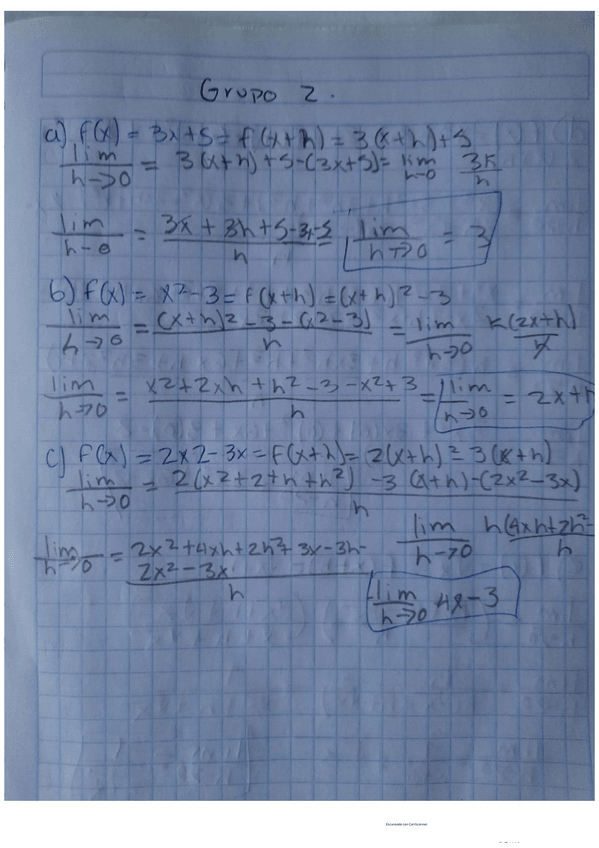 Grupo 2.
a) f(x) = 3x+5 = f(x+h) = 3(x+h)+5
lim h→0 = 3(x+h)+5-(3x+5) = lim h→0 3h/h
lim h-0 = 3x+3h+5-3x-5 / h = lim h→0 = 3
b) f(x) = x²-3 = f(x+h) = (x+h)²-3
lim h→0 = (x+h)²-3-(x²-3) / h = lim h→0 h(2x+h) / h
lim h→0 = x2+2xh+h²-3-x²+3 / h = lim h→0 = 2x+h
c) f(x) = 2x2-3x = f(x+h) = (2(x+h)²-3(x+h)
lim h→0 = 2(x2+2+h+h²)-3(x+h)-(2x²-3x) / h
lim h→0 = 2x²+4xh+2h²+3x-3h-
2x²-3x / h
lim h→0 h(4xh+2h²- / h
lim h→0 4x-3
Escaneado con CamScanner